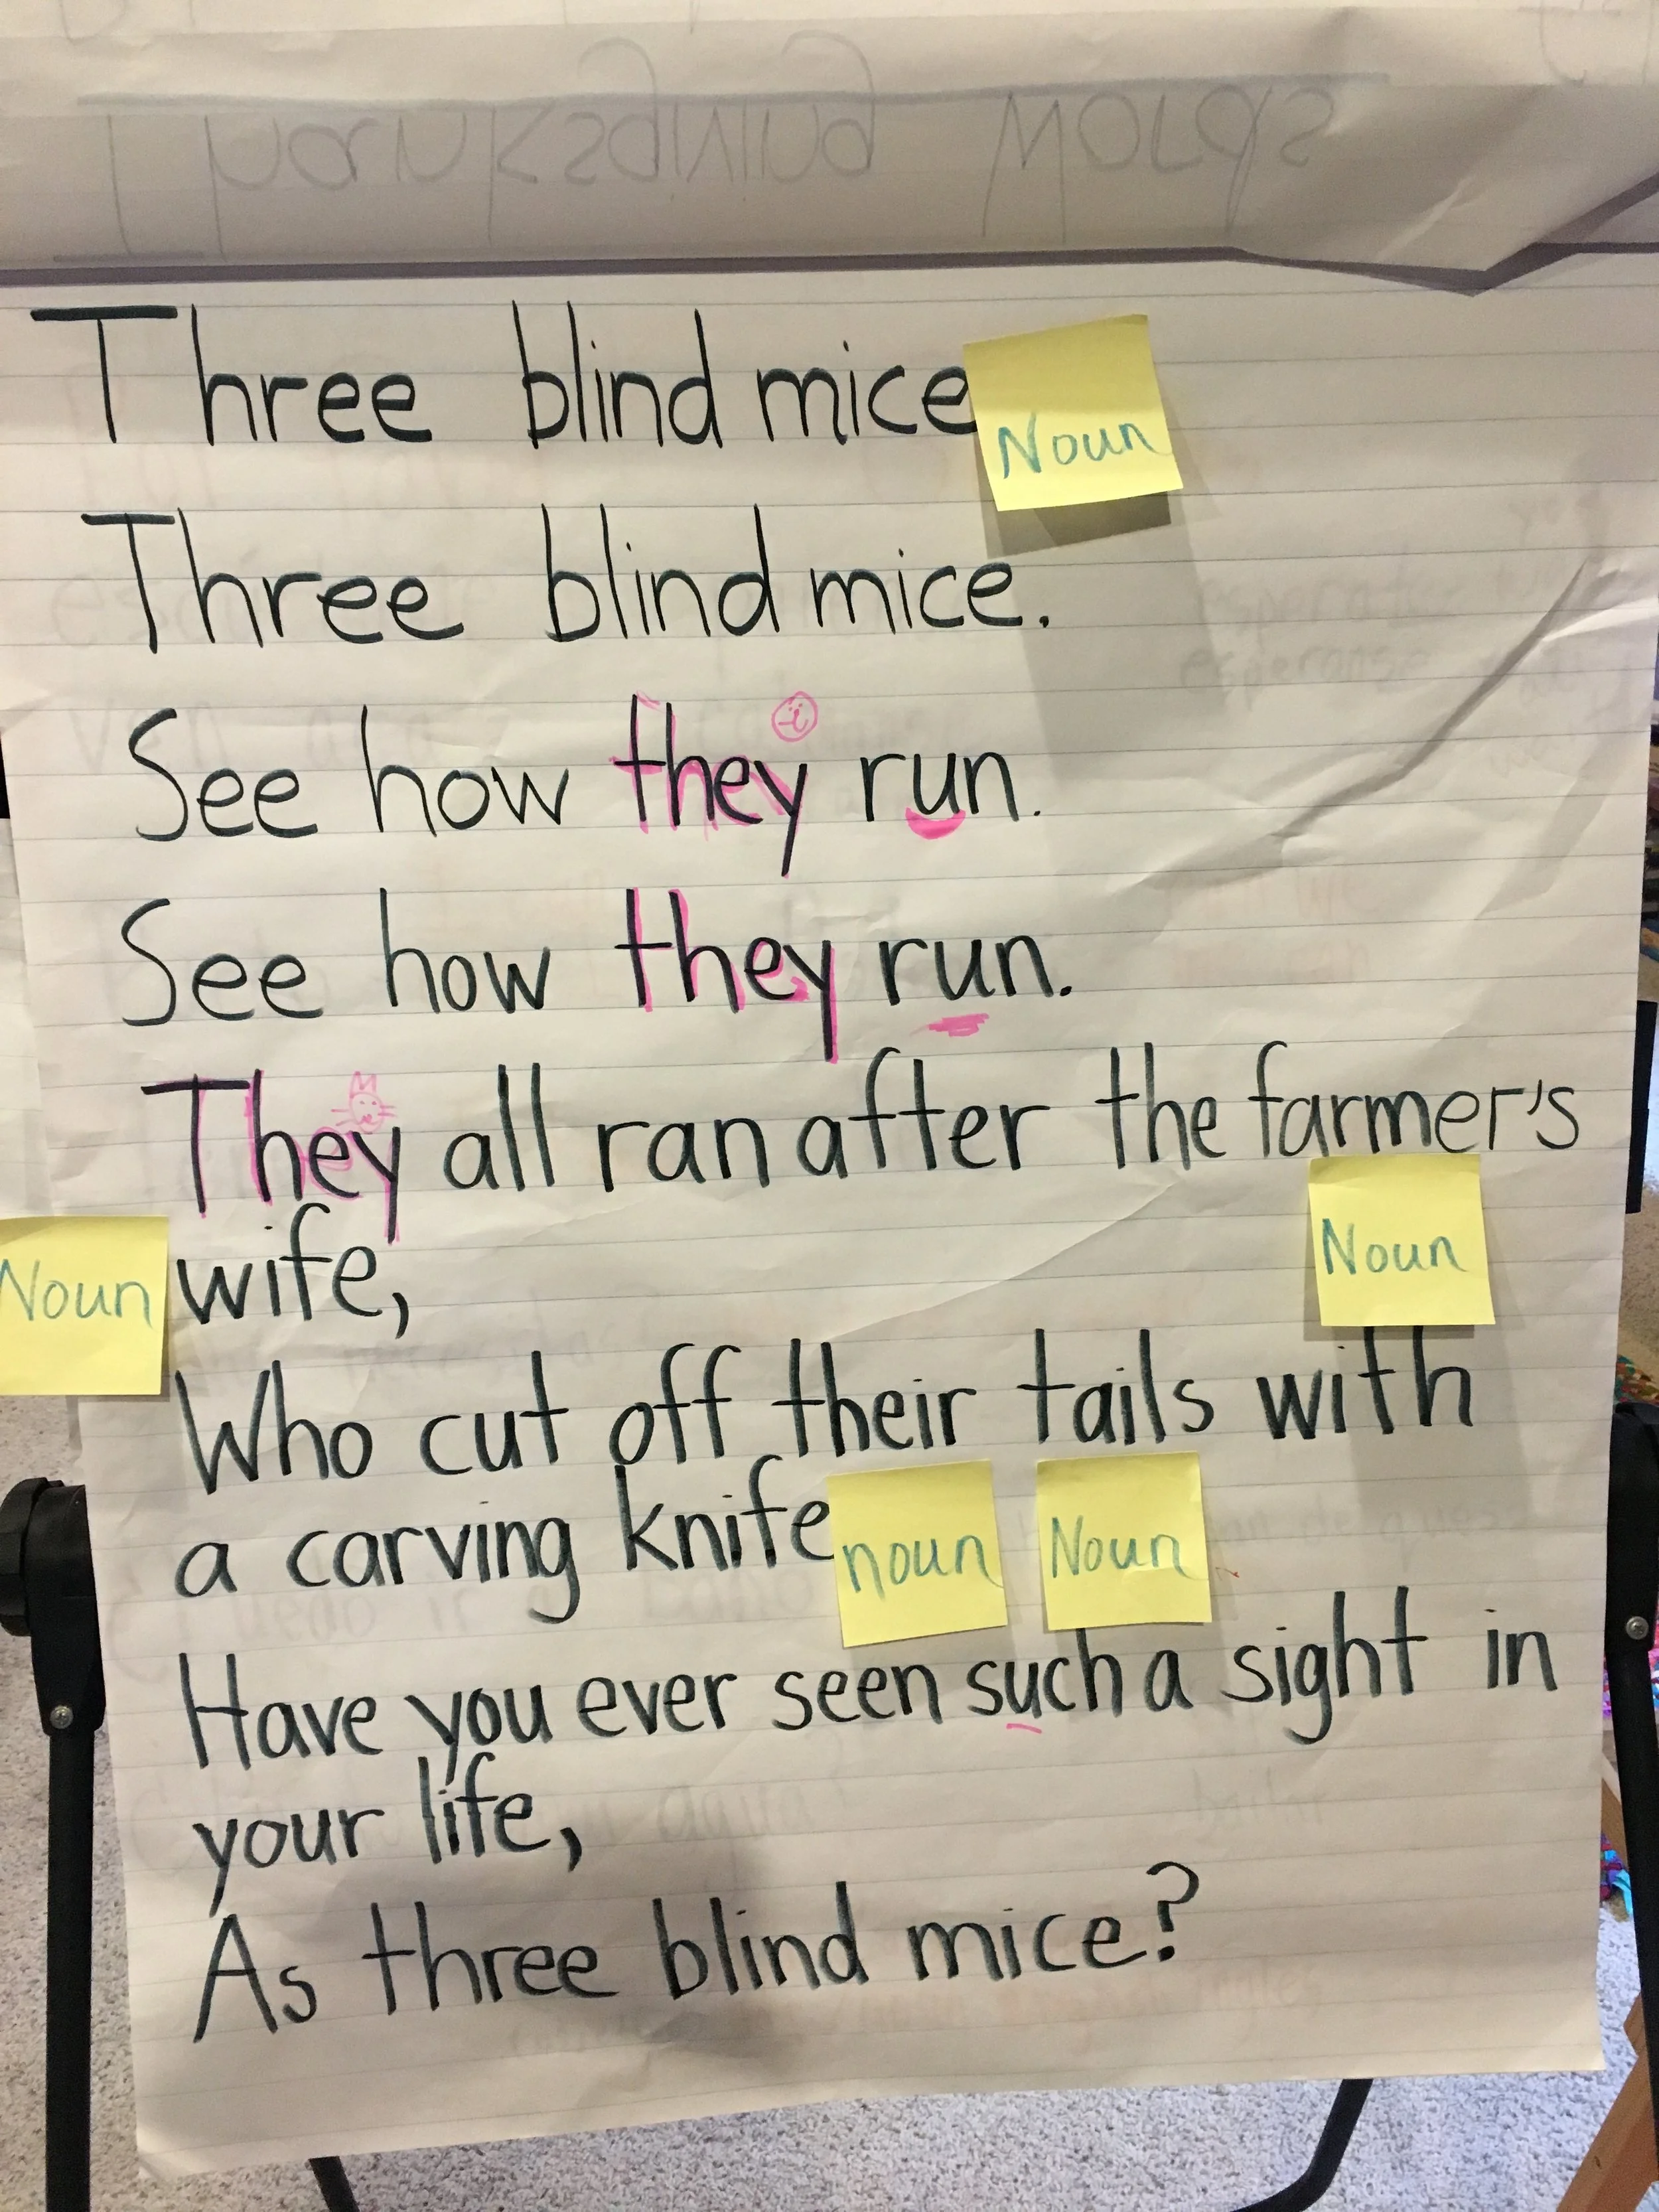 Thanksgiving Words
Three blind mice
Noun
Three blind mice.
See how they run.
See how they run.
They all ran after the farmer's
Noun
wife,
Noun
Who cut off their tails with
a carving knife
noun
Noun
Have you ever seen such a sight in
your life,
As three blind mice?